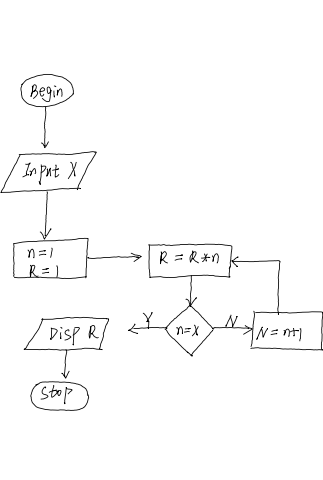 Begin
Input X
n=1
R=1
R=R*n
n=x
Y
N
N=n+1
Disp R
Stop